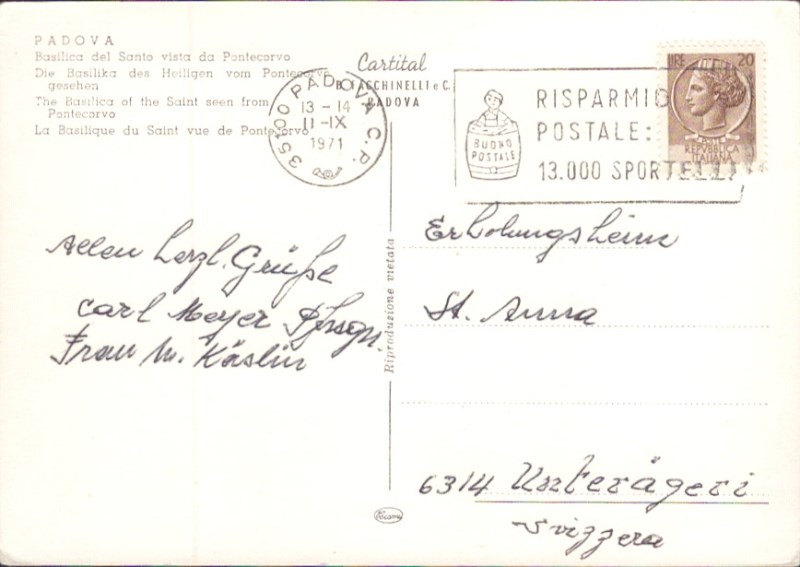 PADOVA
Basilica del Santo vista da Pontecorvo
Die Basilika des Heiligen vom Pontecorvo
gesehen
The Basilica of the Saint seen from
Pontecorvo
La Basilique du Saint vue de Pontecorvo
Cartital
B. FACCHINELLI e C.
PADOVA
35100 PADOVA C.P.
13-14
11-IX
1971
BUONO
POSTALE
RISPARMIO
POSTALE:
13.000 SPORTELLI
LIRE 20
REPVBBLICA
ITALIANA
Allen herzl. Grüße
Carl Meyer
Frau M. Käslin
Riproduzione vietata
Erholungsheim
St. Anna
6314 Unterägeri
Svizzera